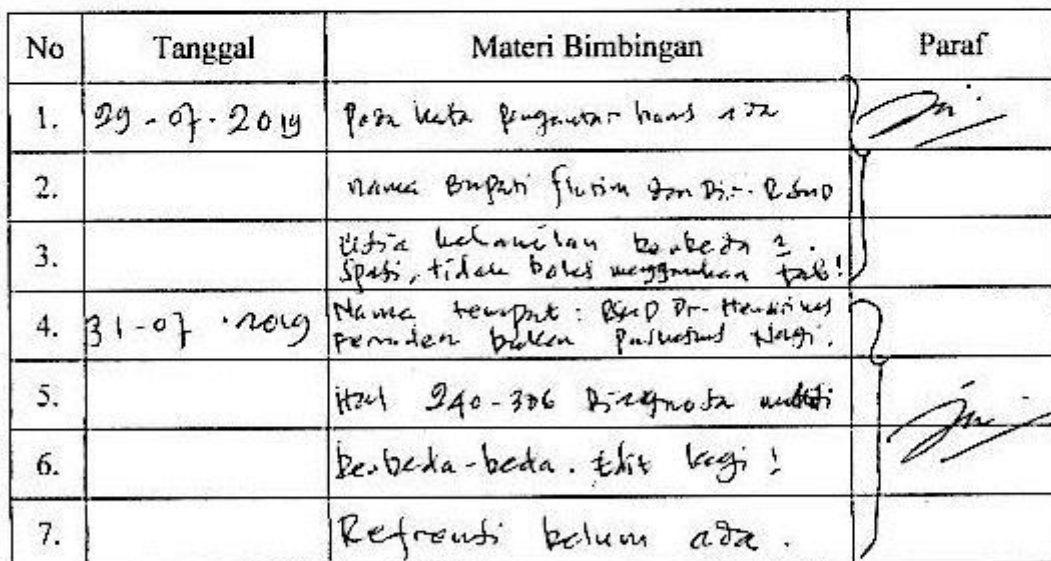 No Tanggal Materi Bimbingan Paraf
1. 29-07-2019 Pada kata pengantar harus ada
2. nama Bupati Flotim dan Dir. RSUD
3. Usia kehamilan berbeda 2.
Spasi, tidak boleh menggunakan !
4. 31-07-2019 Nama tempat: RSUD Dr. Hendrikus
Fernandez bukan Puskesmas Nagi.
5. Hal 240-306 Diagnosa
6. berbeda-beda. Edit lagi !
7. Refrensi belum ada.